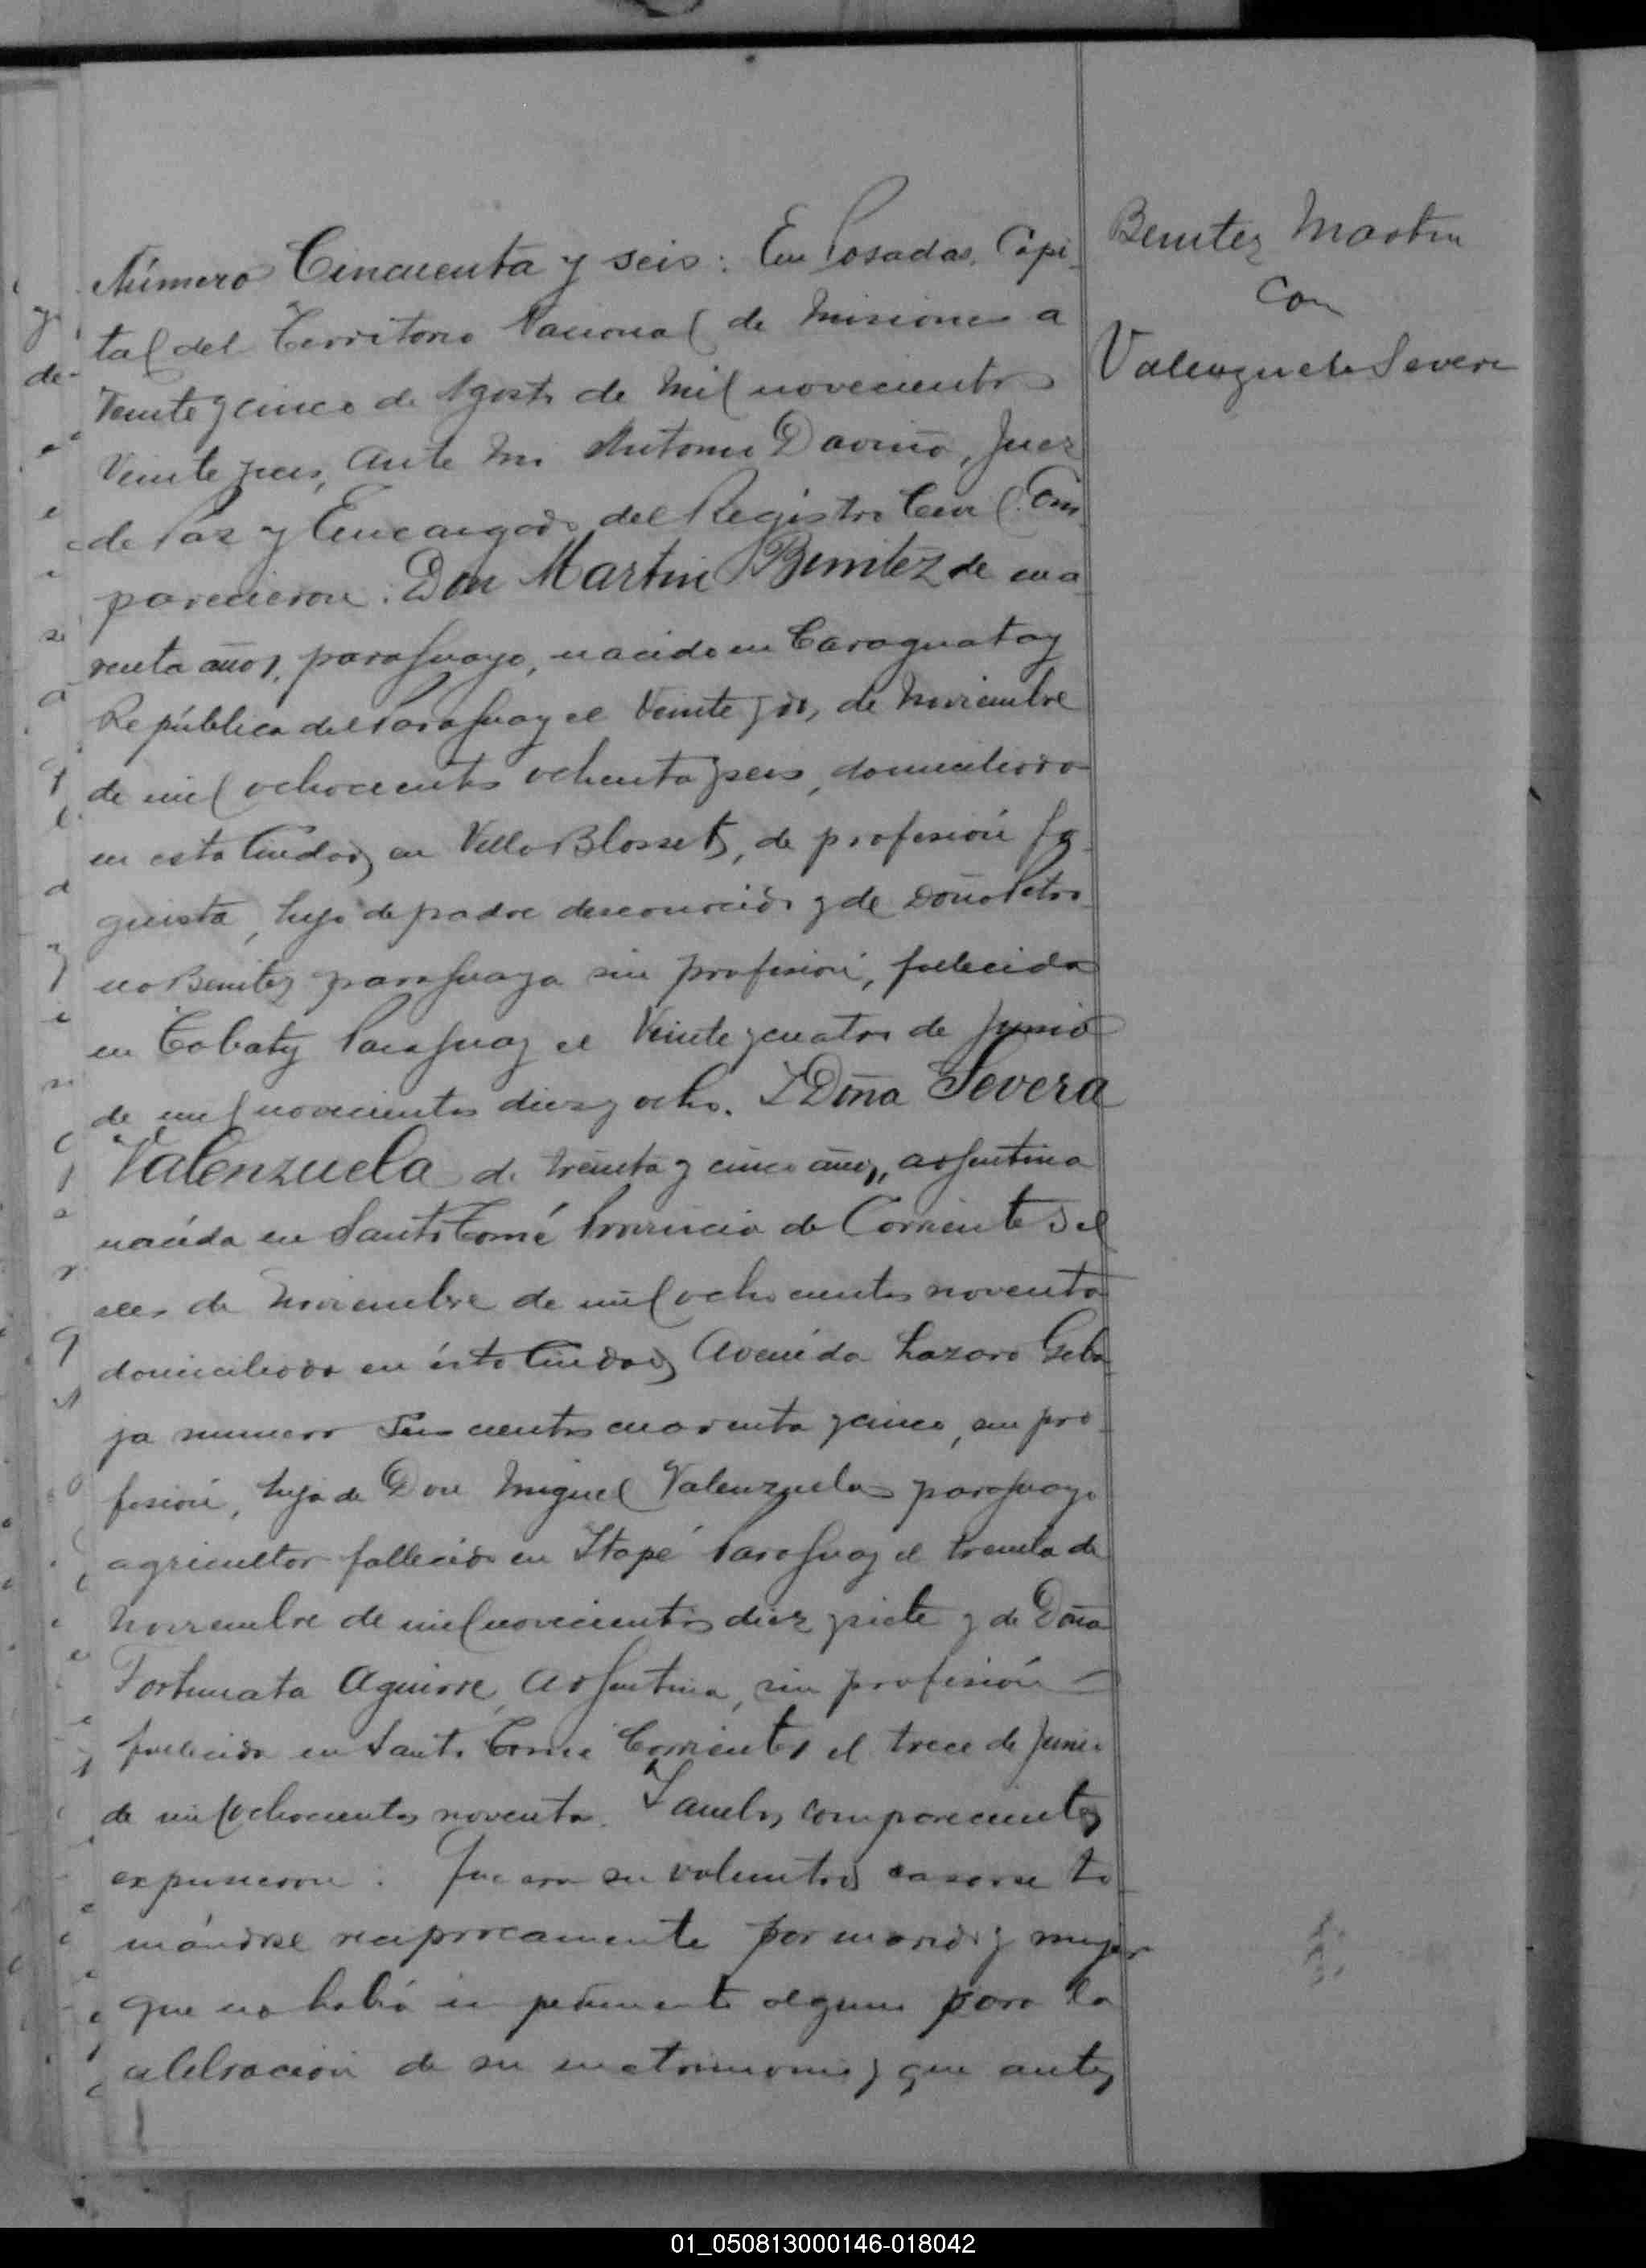 Número Cincuenta y seis: En Posadas, Capi-
tal del Territorio Nacional de Misiones a
Veinte y cinco de Agosto de Mil novecientos
Veinte y seis, Ante Mi Antonio Daviña, Juez
de Paz y Encargado del Registro Civil. Com-
parecieron: Don Martin Benitez de cua-
renta años, paraguayo, nacido en Caraguatay
República del Paraguay el Veinte y dos de Noviembre
de mil ochocientos ochenta y seis, domiciliado
en esta Ciudad en Villa Blosset, de profesión fo-
guista, hijo de padre desconocido y de Doña Petro-
na Benitez paraguaya sin profesión, fallecida
en Tobaty Paraguay el Veinte y cuatro de Junio
de mil novecientos diez y ocho. Y Doña Severa
Valenzuela de treinta y cinco años, argentina
nacida en Santo Tomé Provincia de Corrientes el
de Noviembre de mil ochocientos noventa
domiciliada en ésta Ciudad Avenida Lazaro Geba
ja numero Seis cientos cuarenta y cinco, sin pro-
fesión, hija de Don Miguel Valenzuela paraguayo
agricultor fallecido en Itapé Paraguay el treinta de
Noviembre de mil novecientos diez y siete y de Doña
Fortunata Aguirre, Argentina, sin profesión
fallecida en Santo Tomé Corrientes el trece de Junio
de mil ochocientos noventa. Y ambos comparecientes
expusieron: Que era su voluntad casarse to-
mándose reciprocamente por marido y mujer
que no había impedimento alguno para la
celebración de su matrimonio y que antes
Benitez Martin
Con
Valenzuela Severa
01_050813000146-018042